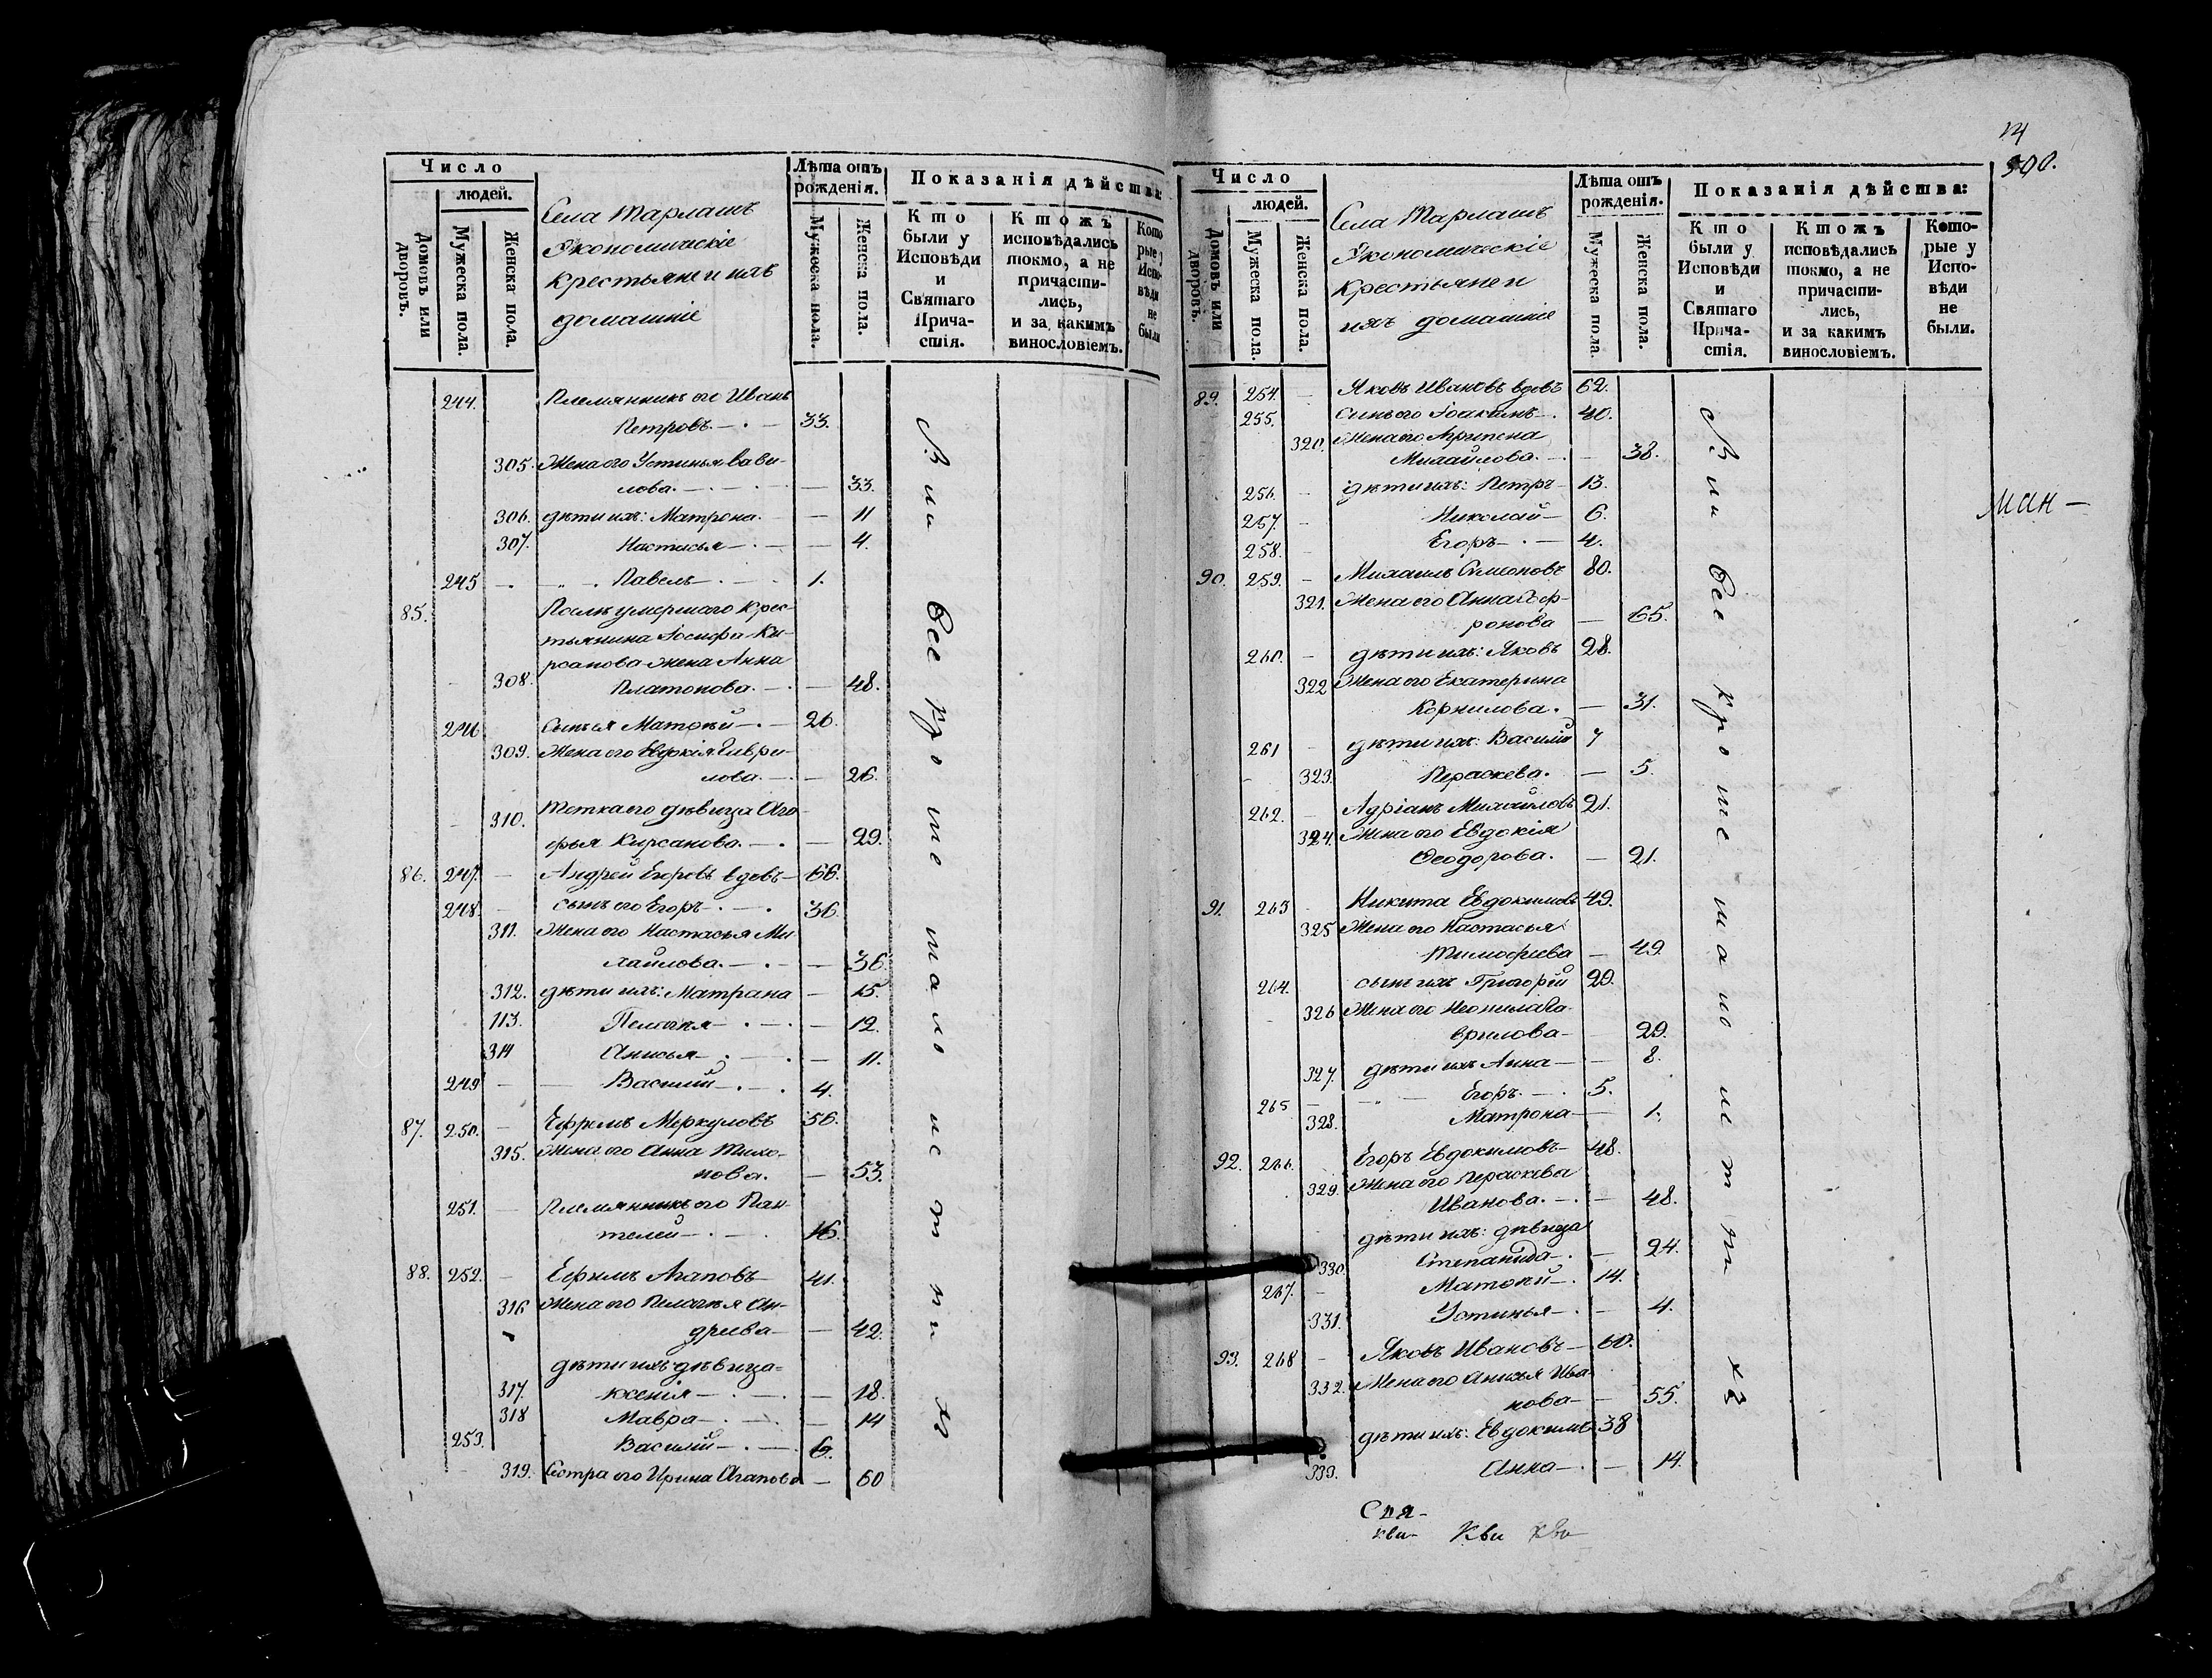 Число
людей.
Домовъ или дворовъ.
Мужеска пола.
Женска пола.
Села Тарлашъ
Экономическіе
крестьяне и ихъ
домашніе
Лѣта отъ
рожденія.
Мужеска пола.
Женска пола.
Показанія дѣйства:
Кто
были у
Исповѣди
и
Святаго
Прича-
стія.
Ктожъ
исповѣдались
токмо, а не
причасти-
лись,
и за какимъ
винословіемъ.
Кото
рые у
Испо-
вѣди
не
были
244. Племянникъ его Иванъ
Петровъ 33.
305. Жена его Устинья Вави-
лова. 33.
306. дѣти ихъ: Матрона. 11
307. Настасья 4.
245 Павелъ 1.
85. Послѣ умершаго крес-
тьянина Іосифа Ки-
рсанова жена Анна
308. Платонова. 48.
246 Сынъ я Матвѣй 26.
309. Жена его Евдокія Гаври-
лова. 26.
310. Тетка его дѣвица Ага
фья Кирсанова. 29.
86. 247. Андрей Егоровъ вдовъ 66.
248. сынъ его Егоръ 36.
311. Жена его Настасья Ми-
хайлова. 36.
312. дѣти ихъ: Матрана 15.
113. Пелагея 12.
314 Анисья 11.
249 Василій 4.
87. 250. Ефремъ Меркуловъ 56.
315. Жена его Анна Тихо-
нова. 53.
251. Племянникъ его Пан-
телей 16.
88. 252. Ефимъ Агаповъ 41.
316 Жена его Пелагея Ан-
древа 42.
дѣти ихъ дѣвица
317. ксенія 18.
318 Мавра 14
253. Василій 6.
319. Сестра его Ирина Агапова 60
Вси
все
кро
ше
14
300.
Число
людей.
Домовъ или дворовъ.
Мужеска пола.
Женска пола.
Села Тарлашъ
Экономическіе
крестьяне и
ихъ домашніе
Лѣта отъ
рожденія.
Мужеска пола.
Женска пола.
Показанія дѣйства:
Кто
были у
Исповѣди
и
Святаго
Прича-
стія.
Ктожъ
исповѣдались
токмо, а не
причасти-
лись,
и за какимъ
винословіемъ.
Кото-
рые у
Испо-
вѣди
не
были.
89. 254. Яковъ Ивановъ вдовъ 62.
255. Сынъ его Іоакимъ. 40.
320. Жена его Агрипена
Михайлова. 38.
256. дѣти ихъ: Петръ 13.
257. Николай 6.
258. Егоръ 4.
90. 259. Михаилъ Симеоновъ 80.
321. Жена его Анна Соф-
ронова 65.
260. дѣти ихъ: Яковъ 28.
322 Жена его Екатерина
Корнилова. 31.
261 дѣти ихъ: Василій 7
323. Пераскева. 5.
262. Адріанъ Михайловъ 21.
324. Жена его Евдокія
Феодорова. 21.
91. 263 Никита Евдокимовъ 49.
325 Жена его Настасья
Тимофеева 49.
264. сынъ ихъ Григорей 29.
326 Жена его Неонила Га-
врилова 29.
327. дѣти ихъ Анна 8.
265 Егоръ. 5.
328. Матрона 1.
92. 266. Егоръ Евдокимовъ 48.
329. Жена его Пераскева
Иванова. 48.
дѣти ихъ: дѣвица
330. Степанида 24.
267. Матвѣй 14.
331. Устинья 4.
93. 268 Яковъ Ивановъ 60.
332. Жена его Анисья Ива-
нова 55.
дѣти ихъ: Евдокимъ 38
333. Анна 14.
Вси
все
кро
ше
мин
кви кви